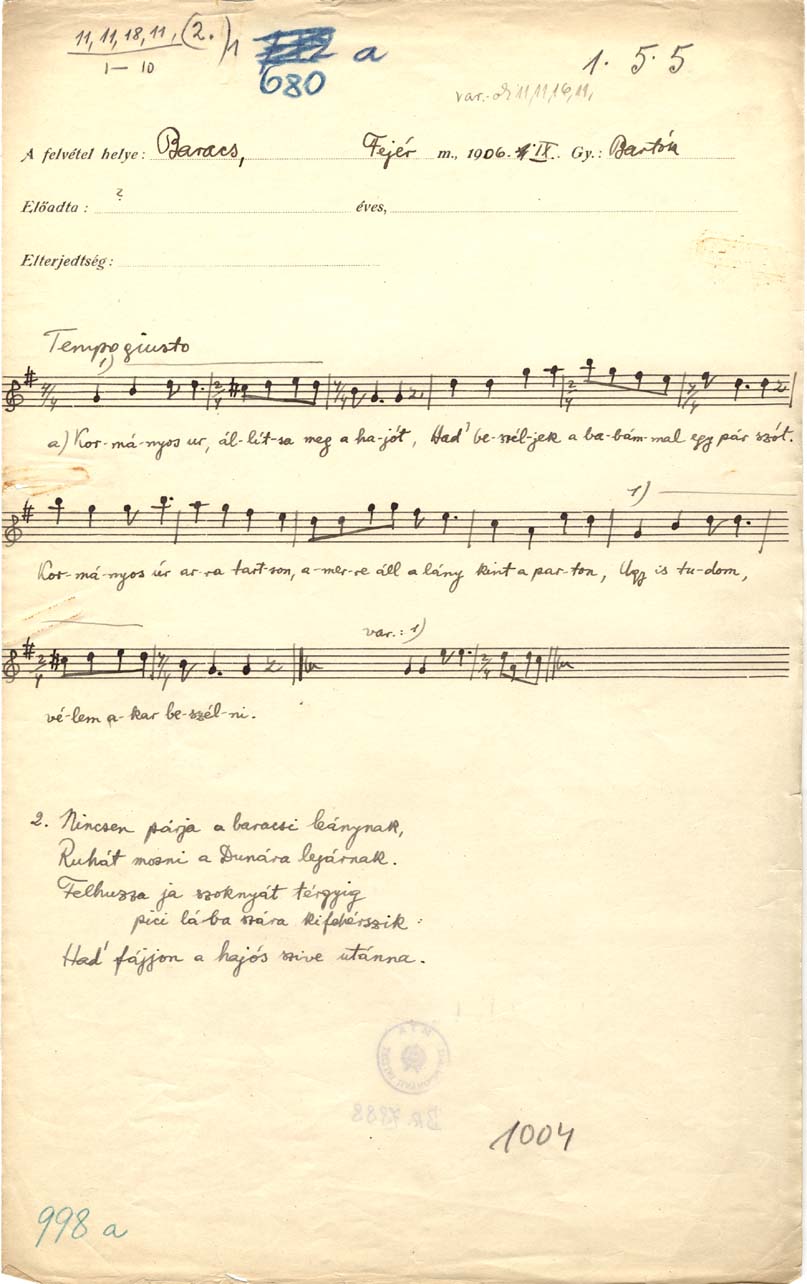 11, 11, 18, 11, (2.)
1— 10
a
680
1. 5. 5
var.
A felvétel helye: Baracs, Fejér m., 1906. IX. Gy.: Bartók
Előadta: ? éves,
Elterjedtség:
Tempo giusto
1)
a) Kor-má-nyos ur, ál-lít-sa meg a ha-jót, Had' be-szél-jek a ba-bám-mal egy pár szót.
1)
Kor-má-nyos úr ar-ra tart-son, a-mer-re áll a lány kint a par-ton, Ugy is tu-dom,
var.: 1)
vé-lem a-kar be-szél-ni.
2. Nincsen párja a baracsi leánynak,
Ruhát mosni a Dunára lejárnak.
Felhuzza ja szoknyát térgyig
pici lá-ba szára kifehérszik:
Had' fájjon a hajós szive utánna.
1004
998 a